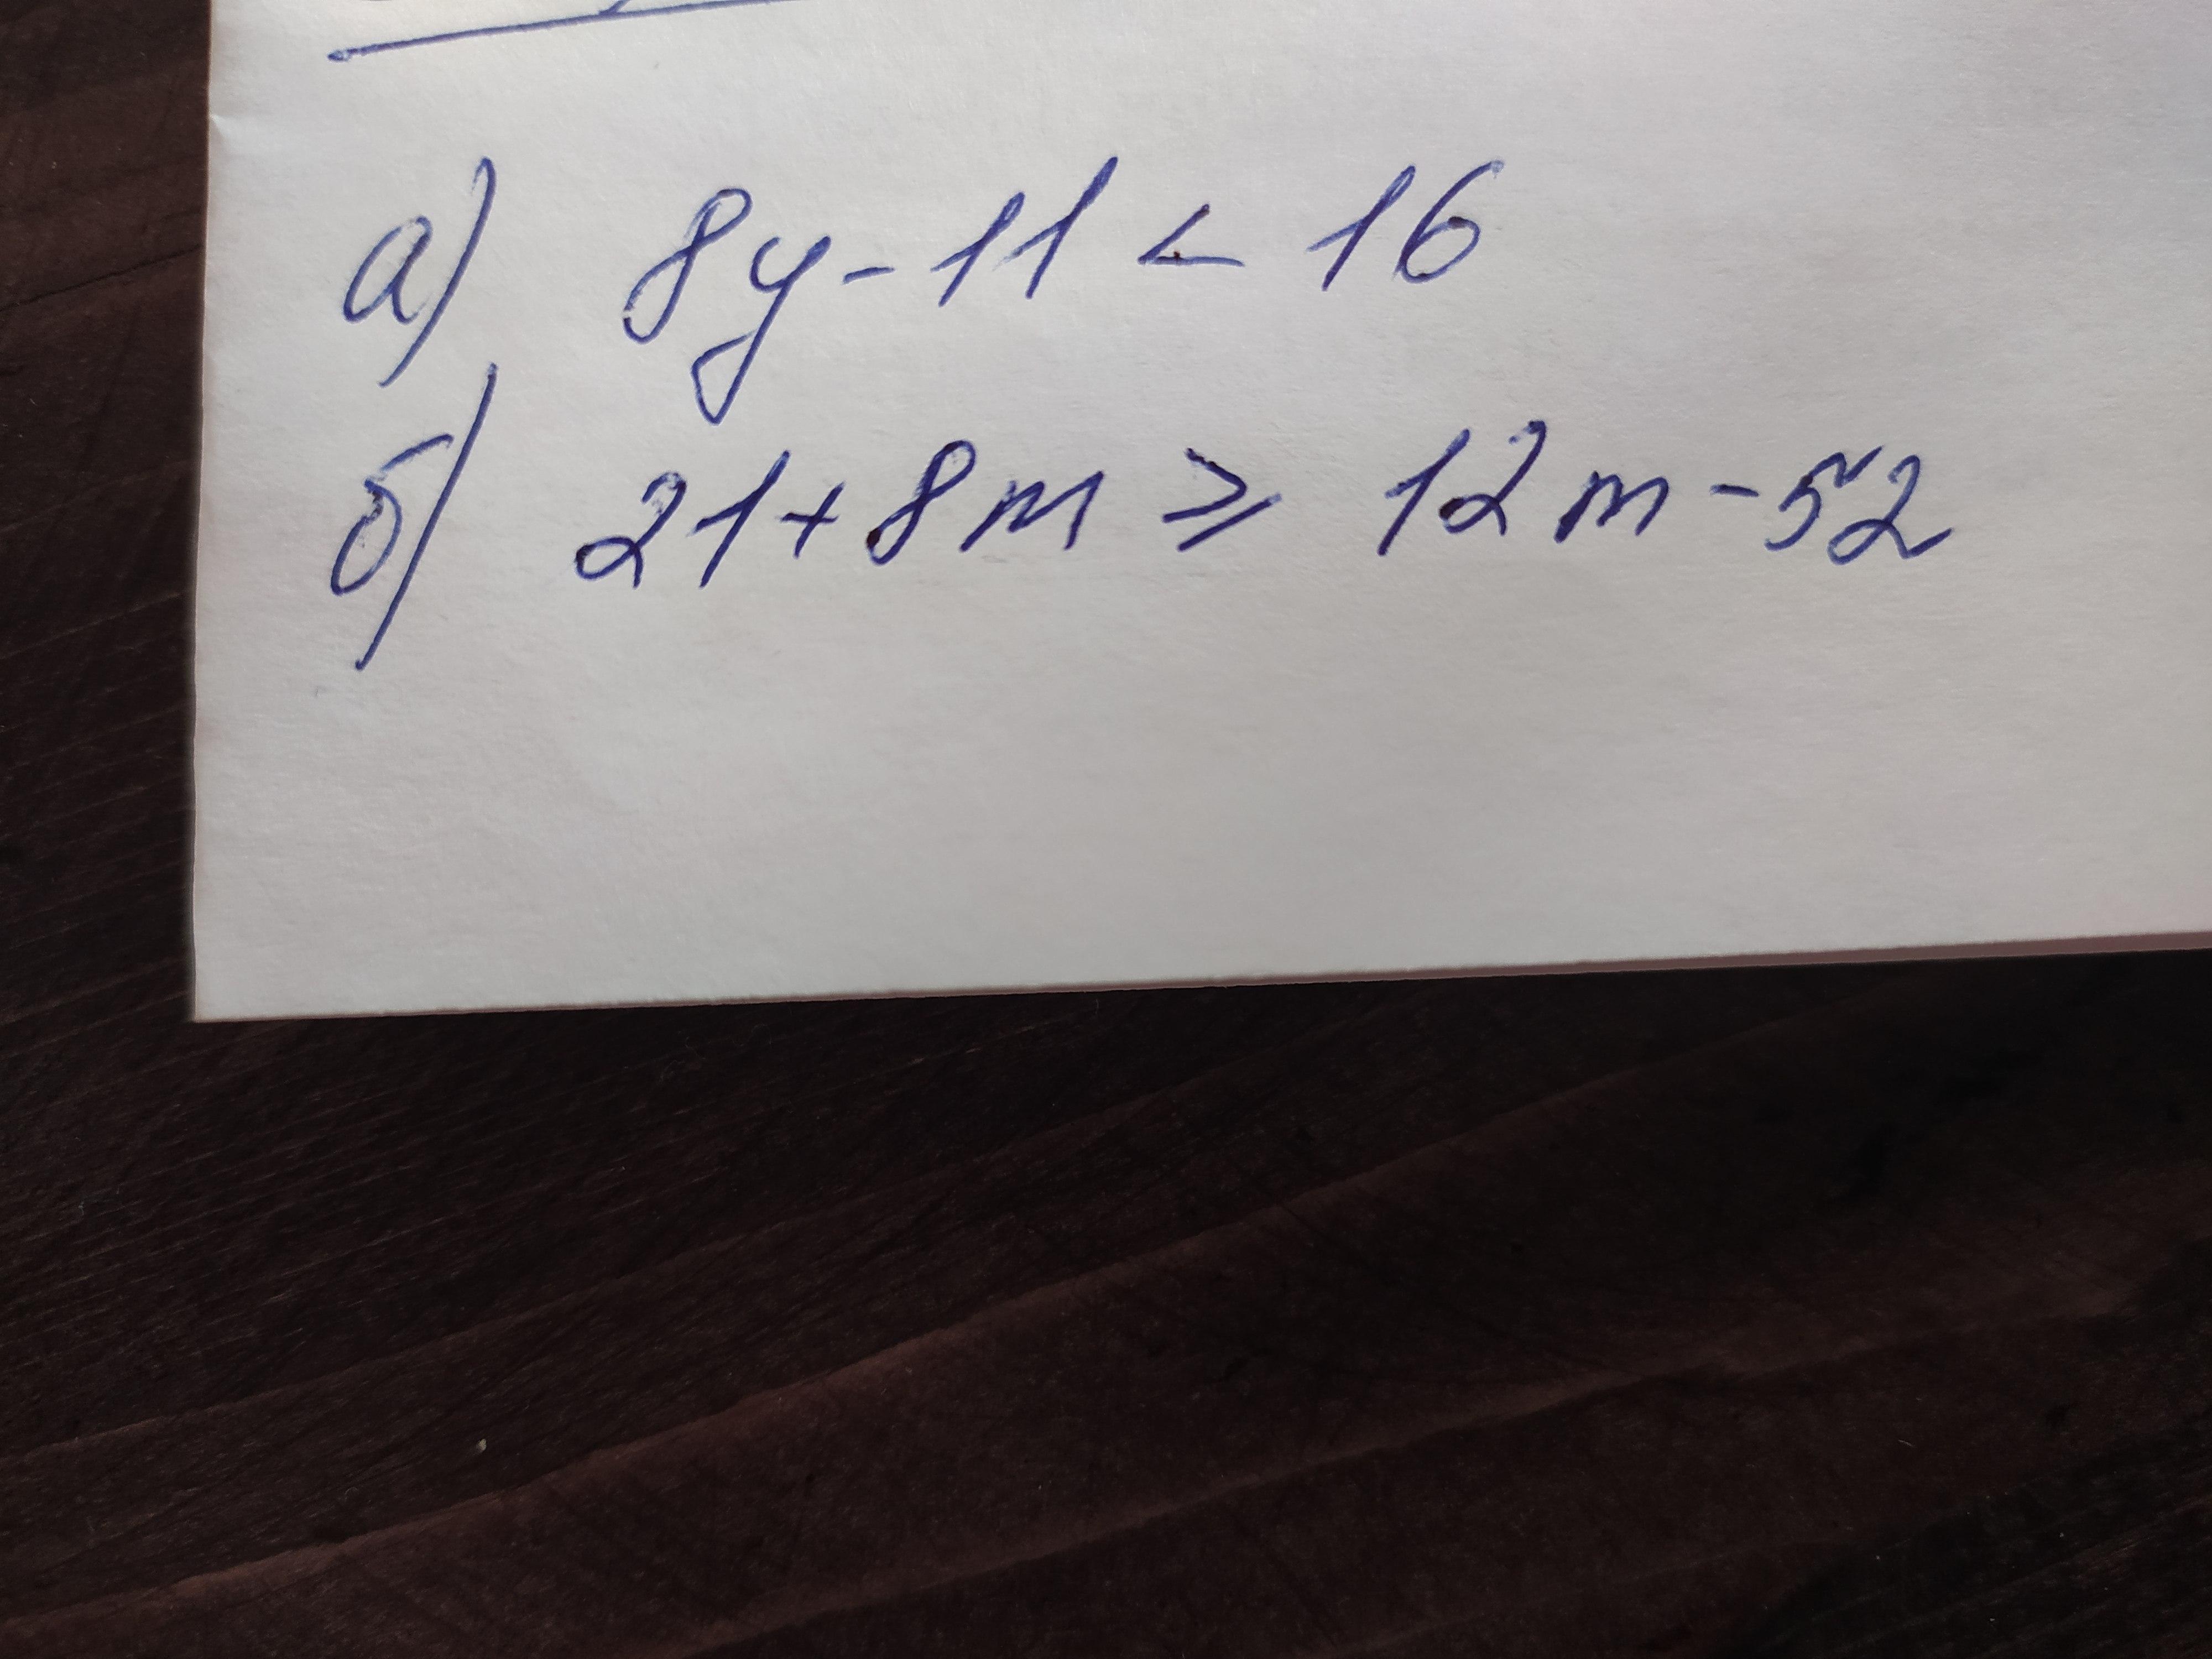 а) 8y - 11 < 16
б) 21 + 8m ⩾ 12m - 52